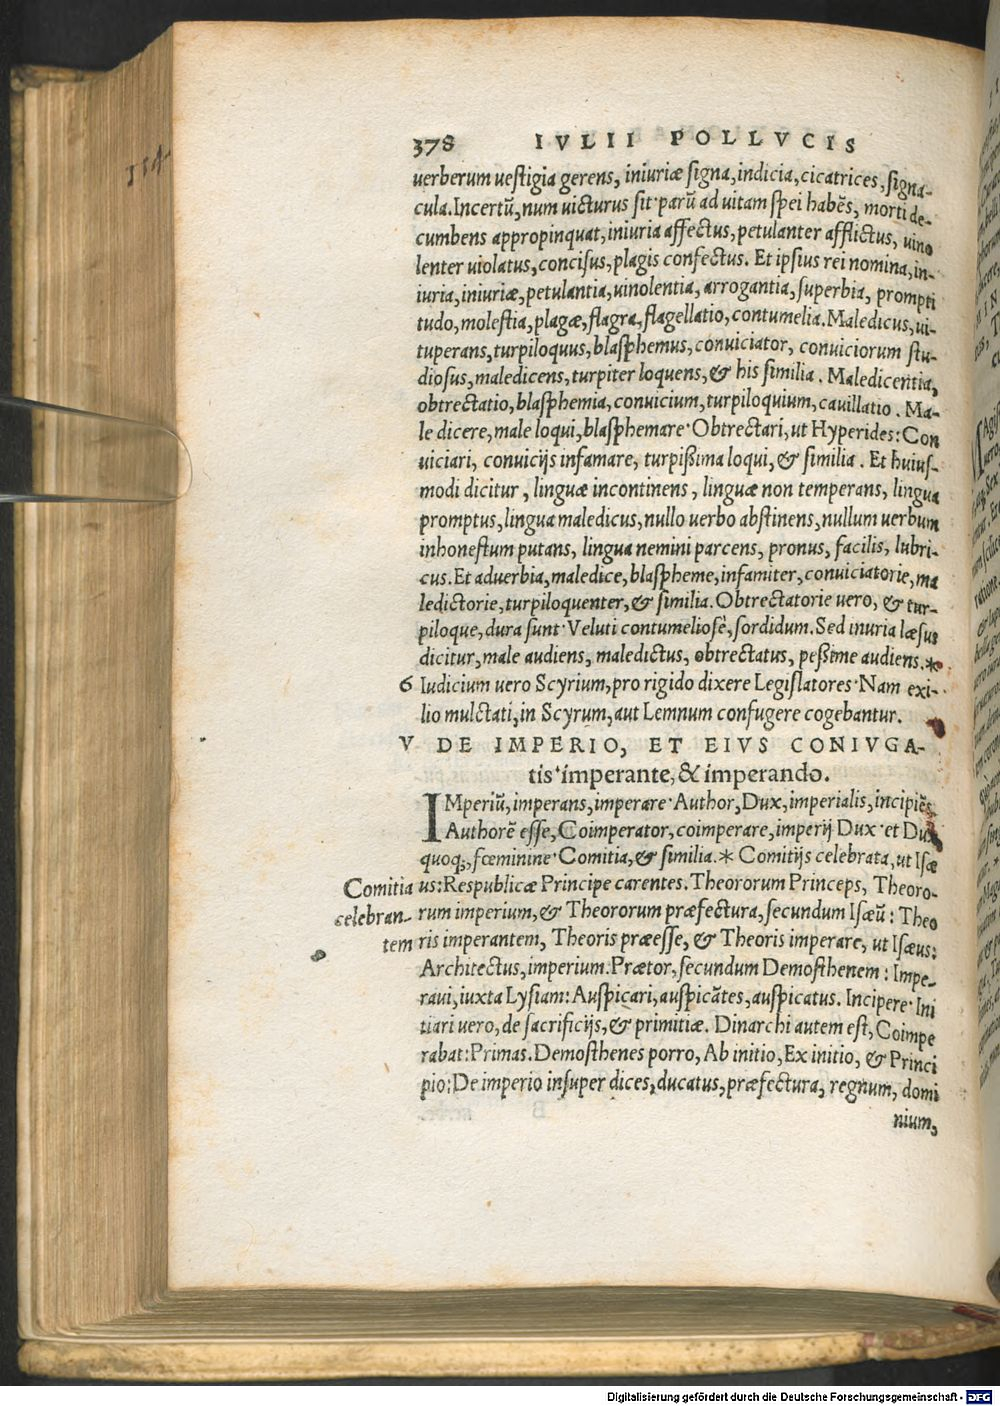 154
378 IVLII POLLVCIS
uerberum uestigia gerens, iniuriæ signa, indicia, cicatrices, signa-
cula. Incertũ, num uicturus sit· parũ ad uitam spei habẽs, morti de-
cumbens appropinquat, iniuria affectus, petulanter afflictus, uino
lenter uiolatus, concisus, plagis confectus. Et ipsius rei nomina, in-
iuria, iniuriæ, petulantia, uinolentia, arrogantia, superbia, prompti
tudo, molestia, plagæ, flagra, flagellatio, contumelia. Maledicus, ui-
tuperans, turpiloquus, blasphemus, conuiciator, conuiciorum stu-
diosus, maledicens, turpiter loquens, & his similia. Maledicentia,
obtrectatio, blasphemia, conuicium, turpiloquium, cauillatio. Ma-
le dicere, male loqui, blasphemare· Obtrectari, ut Hyperides: Con
uiciari, conuicijs infamare, turpißima loqui, & similia. Et huius-
modi dicitur, linguæ incontinens, linguæ non temperans, lingua
promptus, lingua maledicus, nullo uerbo abstinens, nullum uerbum
inhonestum putans, lingua nemini parcens, pronus, facilis, lubri-
cus. Et aduerbia, maledice, blaspheme, infamiter, conuiciatorie, ma
ledictorie, turpiloquenter, & similia. Obtrectatorie uero, & tur-
piloque, dura sunt· Veluti contumeliosè, sordidum. Sed iniuria læsus
dicitur, male audiens, maledictus, obtrectatus, peßime audiens.*
6 Iudicium uero Scyrium, pro rigido dixere Legislatores· Nam exi-
lio mulctati, in Scyrum, aut Lemnum confugere cogebantur.
V DE IMPERIO, ET EIVS CONIVGA-
tis· imperante, & imperando.
IMperiũ, imperans, imperare· Author, Dux, imperialis, incipiẽs
Authorẽ esse, Coimperator, coimperare, imperij Dux· et Dux
quoq;, fœminine· Comitia, & similia.* Comitijs celebrata, ut Isæ
Comitia us: Respublicæ Principe carentes. Theororum Princeps, Theoro-
celebran- rum imperium, & Theororum præfectura, secundum Isæũ: Theo
tem ris imperantem, Theoris præesse, & Theoris imperare, ut Isæus:
Architectus, imperium. Prætor, secundum Demosthenem: Impe-
raui, iuxta Lysiam: Auspicari, auspicãtes, auspicatus. Incipere· Ini
tiari uero, de sacrificijs, & primitiæ. Dinarchi autem est, Coimpe
rabat: Primas. Demosthenes porro, Ab initio, Ex initio, & Princi
pio: De imperio insuper dices, ducatus, præfectura, regnum, domi
nium,
Digitalisierung gefördert durch die Deutsche Forschungsgemeinschaft - DFG